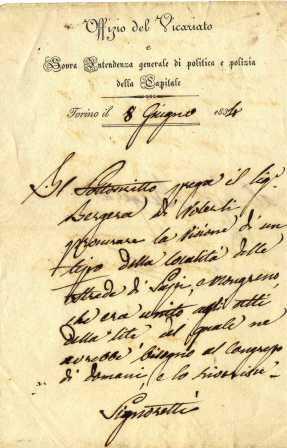 Uffizio del Vicariato
e
Sovra Intendenza generale di politica e polizia
della Capitale
Torino il 8 Giugno 1834
Il Sottoscritto prega il Sig.
Bergera di volerli
procurare la visione di un
tipo della località delle
strade di Sassi, e Mongreno,
che era unito agli atti
della lite del quale ne
avrebbe bisogno al Congresso
di domani, e lo riverisce
Signoretti